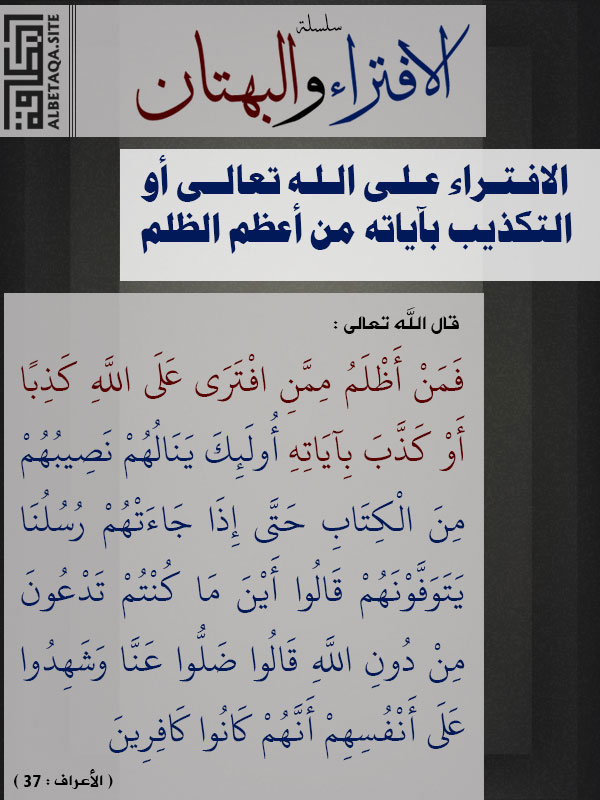 سلسلة
الافتراء والبهتان
البطاقة
ALBETAQA.SITE
الافتراء على الله تعالى أو
التكذيب بآياته من أعظم الظلم
قال اللَّه تعالى :
فَمَنْ أَظْلَمُ مِمَّنِ افْتَرَى عَلَى اللَّهِ كَذِبًا
أَوْ كَذَّبَ بِآيَاتِهِ أُولَئِكَ يَنَالُهُمْ نَصِيبُهُمْ
مِنَ الْكِتَابِ حَتَّى إِذَا جَاءَتْهُمْ رُسُلُنَا
يَتَوَفَّوْنَهُمْ قَالُوا أَيْنَ مَا كُنْتُمْ تَدْعُونَ
مِنْ دُونِ اللَّهِ قَالُوا ضَلُّوا عَنَّا وَشَهِدُوا
عَلَى أَنْفُسِهِمْ أَنَّهُمْ كَانُوا كَافِرِينَ
( الأعراف : 37 )